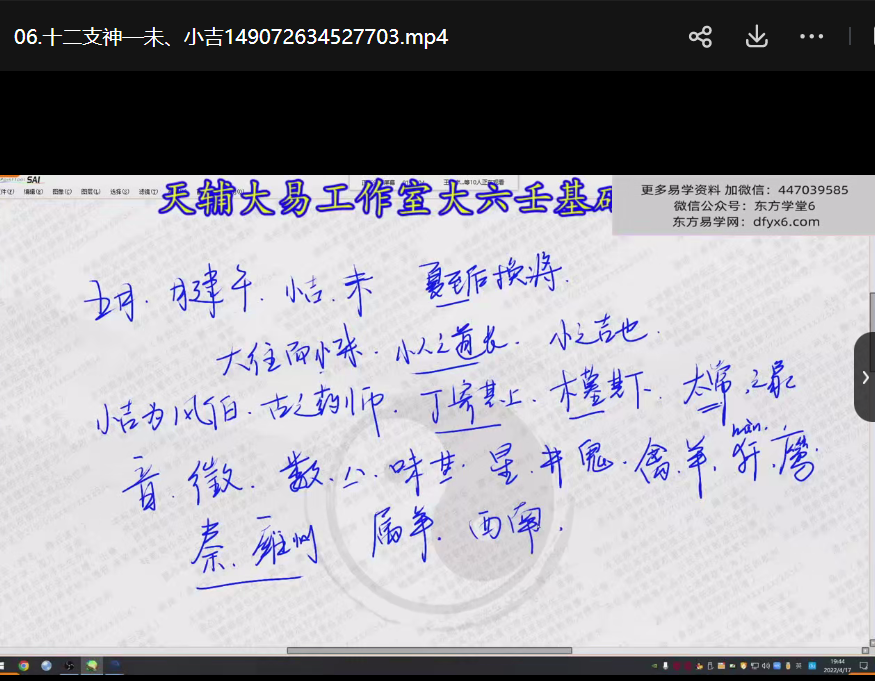 06.十二支神—未、小吉149072634527703.mp4
SAI
天辅大易工作室大六壬基础
更多易学资料 加微信：447039585
微信公众号：东方学堂6
东方易学网：dfyx6.com
五月．月建午．小吉．未 夏至后换将．
大往而小来．小人之道长．小之吉也．
小吉为风伯．古之药师．丁寄其上．木墓其下．太常之象
音．徵．数．八．味甘．星．井鬼．禽．羊．犴．鹰．
hān.
秦．雍州 属羊．西南．
19:44
2022/4/17